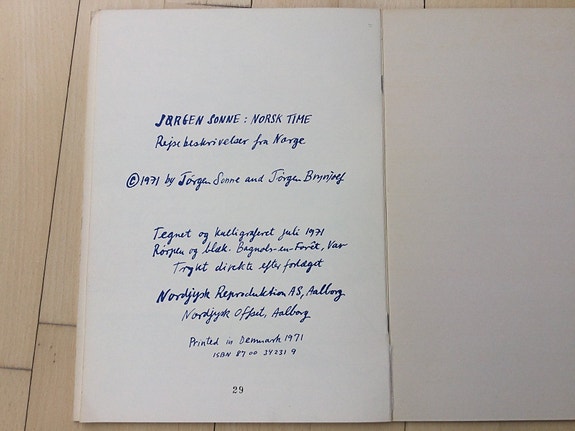 JØRGEN SONNE: NORSK TIME
Rejsebeskrivelser fra Norge
© 1971 by Jørgen Sonne and Jørgen
Tegnet og kalligraferet juli 1971
Rørpen og blæk. Bagnols-en-Forêt, Var
Trykt direkte efter forlæget
Nordjysk Reproduktion AS, Aalborg
Nordjysk Offset, Aalborg
Printed in Denmark 1971
ISBN 87 00 34231 9
29